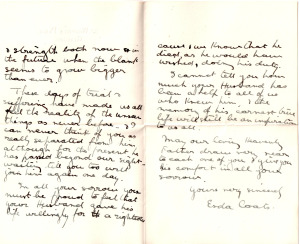 & strength both now & in
the future when the blank
seems to grow bigger
than ever.
These days of trial &
suffering have made us all
feel the reality of the unseen
things as never before. I
can never think of you as
really separated from him
although for the present he
has passed beyond our sight
till you too will
join him again one day.
In all your sorrow you
must be proud to feel that
your Husband gave his
life willingly for a righteous
cause & we know that he
died, as he would have
wished, doing his duty.
I cannot tell you how
much your Husband has
been a help to all of us
who knew him, & the
memory of his earnest true
life will still be an inspiration
to us all.
May our loving heavenly
Father draw very near
to each one of you & give you
his comfort in all your
sorrow.
Yours very sincerely
Esda Coats